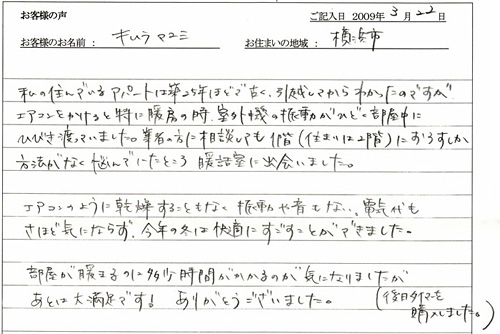 お客様の声 ご記入日 2009年 3月 22日
お客様のお名前： キムラ マユミ お住まいの地域： 横浜市
私の住んでいるアパートは築25年ほどで古く、引越してからわかったのですが
エアコンをかけると特に暖房の時、室外機の振動がひどく部屋中に
ひびき渡っていました。業者の方に相談しても1階(住まいは2階)におろすしか
方法がなく悩んでいたところ 暖話室に出会いました。
エアコンのように乾燥することもなく 振動や音もない、電気代も
さほど気にならず、今年の冬は快適にすごすことができました。
部屋が暖まるのに多少時間がかかるのが気になりましたが
あとは大満足です! ありがとうございました。
(後日タイマーを
購入しました。)